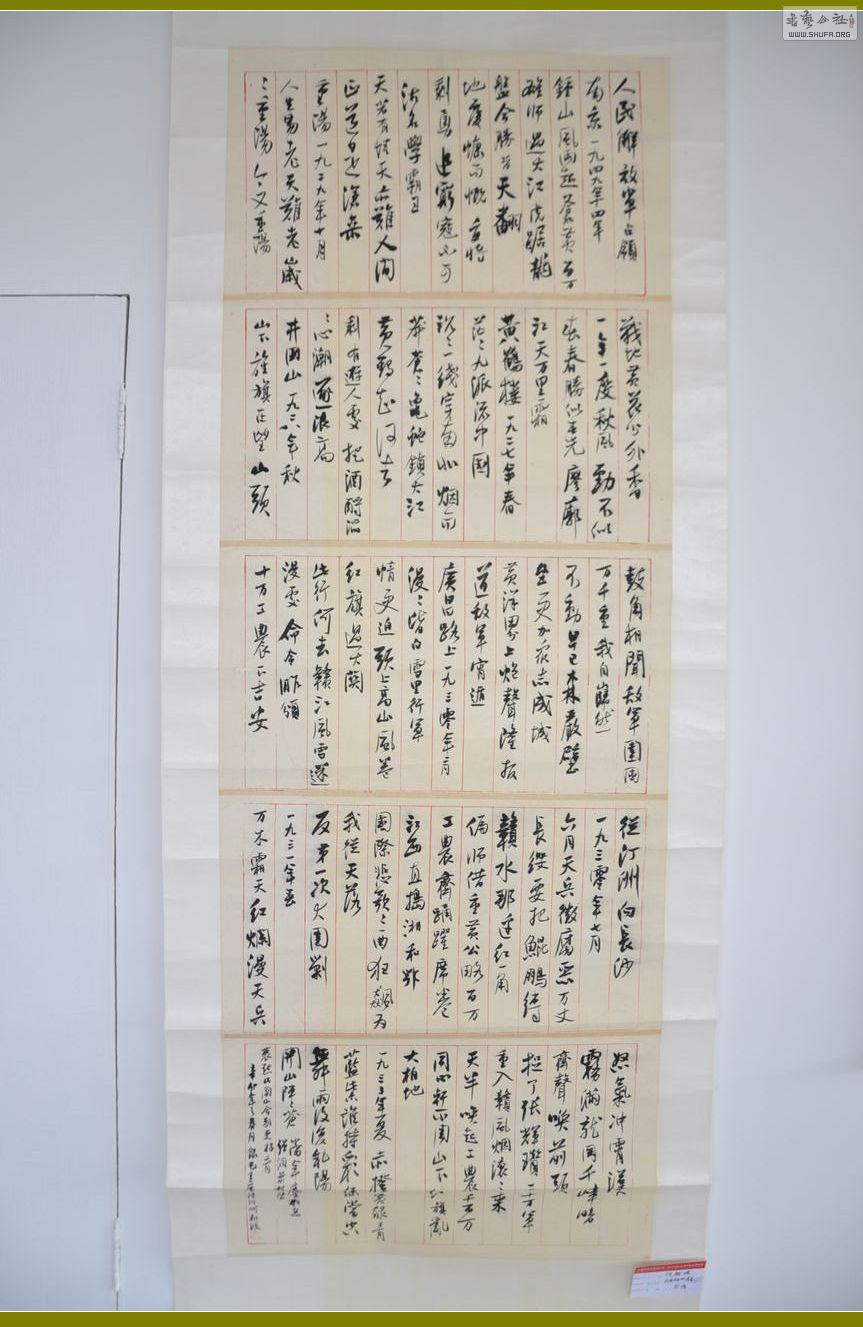 人民解放軍占領
南京一九四九年四年
鍾山風雨起蒼黃百万
雄师過大江虎踞龍
盤今勝昔天翻
地覆慷而慨宜將
剩勇追窮寇不可
沽名學霸王
天若有情天亦難人間
正道是滄桑
重陽一九二九年十月
人生易老天難老歲
〻重陽今又重陽
戰地黃花分外香
一年一度秋風勁不似
春春勝似春光廖廓
江天万里霜
黃鶴樓一九二七年春
茫〻九派流中國
沉〻一線穿南北烟雨
莽蒼〻龜蛇鎖大江
黃鶴知何去
剩有遊人處把酒酹滔
〻心潮逐浪高
井岡山一九二八年秋
山下旌旗在望山頭
鼓角相聞敵軍圍困
万千重我自巋然
不動早已森嚴壁
壘更加衆志成城
黃洋界上炮聲隆报
道敵軍宵遁
廣昌路上一九三零年二月
漫〻皆白雪里行軍
情更迫頭上高山風卷
紅旗過大關
此行何去贛江風雪迷
漫處命令昨頒
十万工農下吉安
從汀洲向長沙
一九三零年七月
六月天兵徵腐惡万丈
長纓要把鯤鵬縛
贛水那邊紅一角
偏师借重黃公略百万
工農齊踊躍席卷
江西直搗湘和鄂
國際悲歌〻一曲狂飆为
我從天落
反第一次大圍剿
一九三一年春
万木霜天紅爛漫天兵
怒氣冲霄漢
霧滿龍岡千嶂暗
齊聲喚前頭
捉了張輝瓚二十万軍
重入贛風烟滾〻來
天半喚起工農千百万
同心幹不周山下紅旗亂
大柏地
一九三三年夏赤橙黃绿青
藍紫誰持彩练當空
舞雨後復斜陽
關山陣〻蒼當年鏖戰急
弹洞前村壁
裝點此關山今朝更好看
www.shufa.org